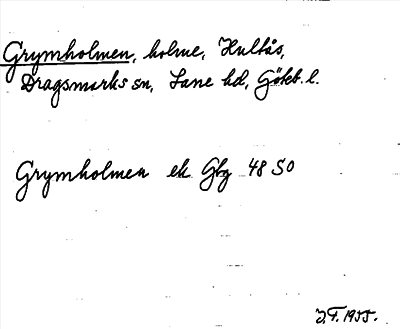 Grymholmen, holme, Hultås,
Dragsmarks sn, Lane hd, Göteb. l.
Grymholmen ek Gbg 48 SO
J.T. 1955.